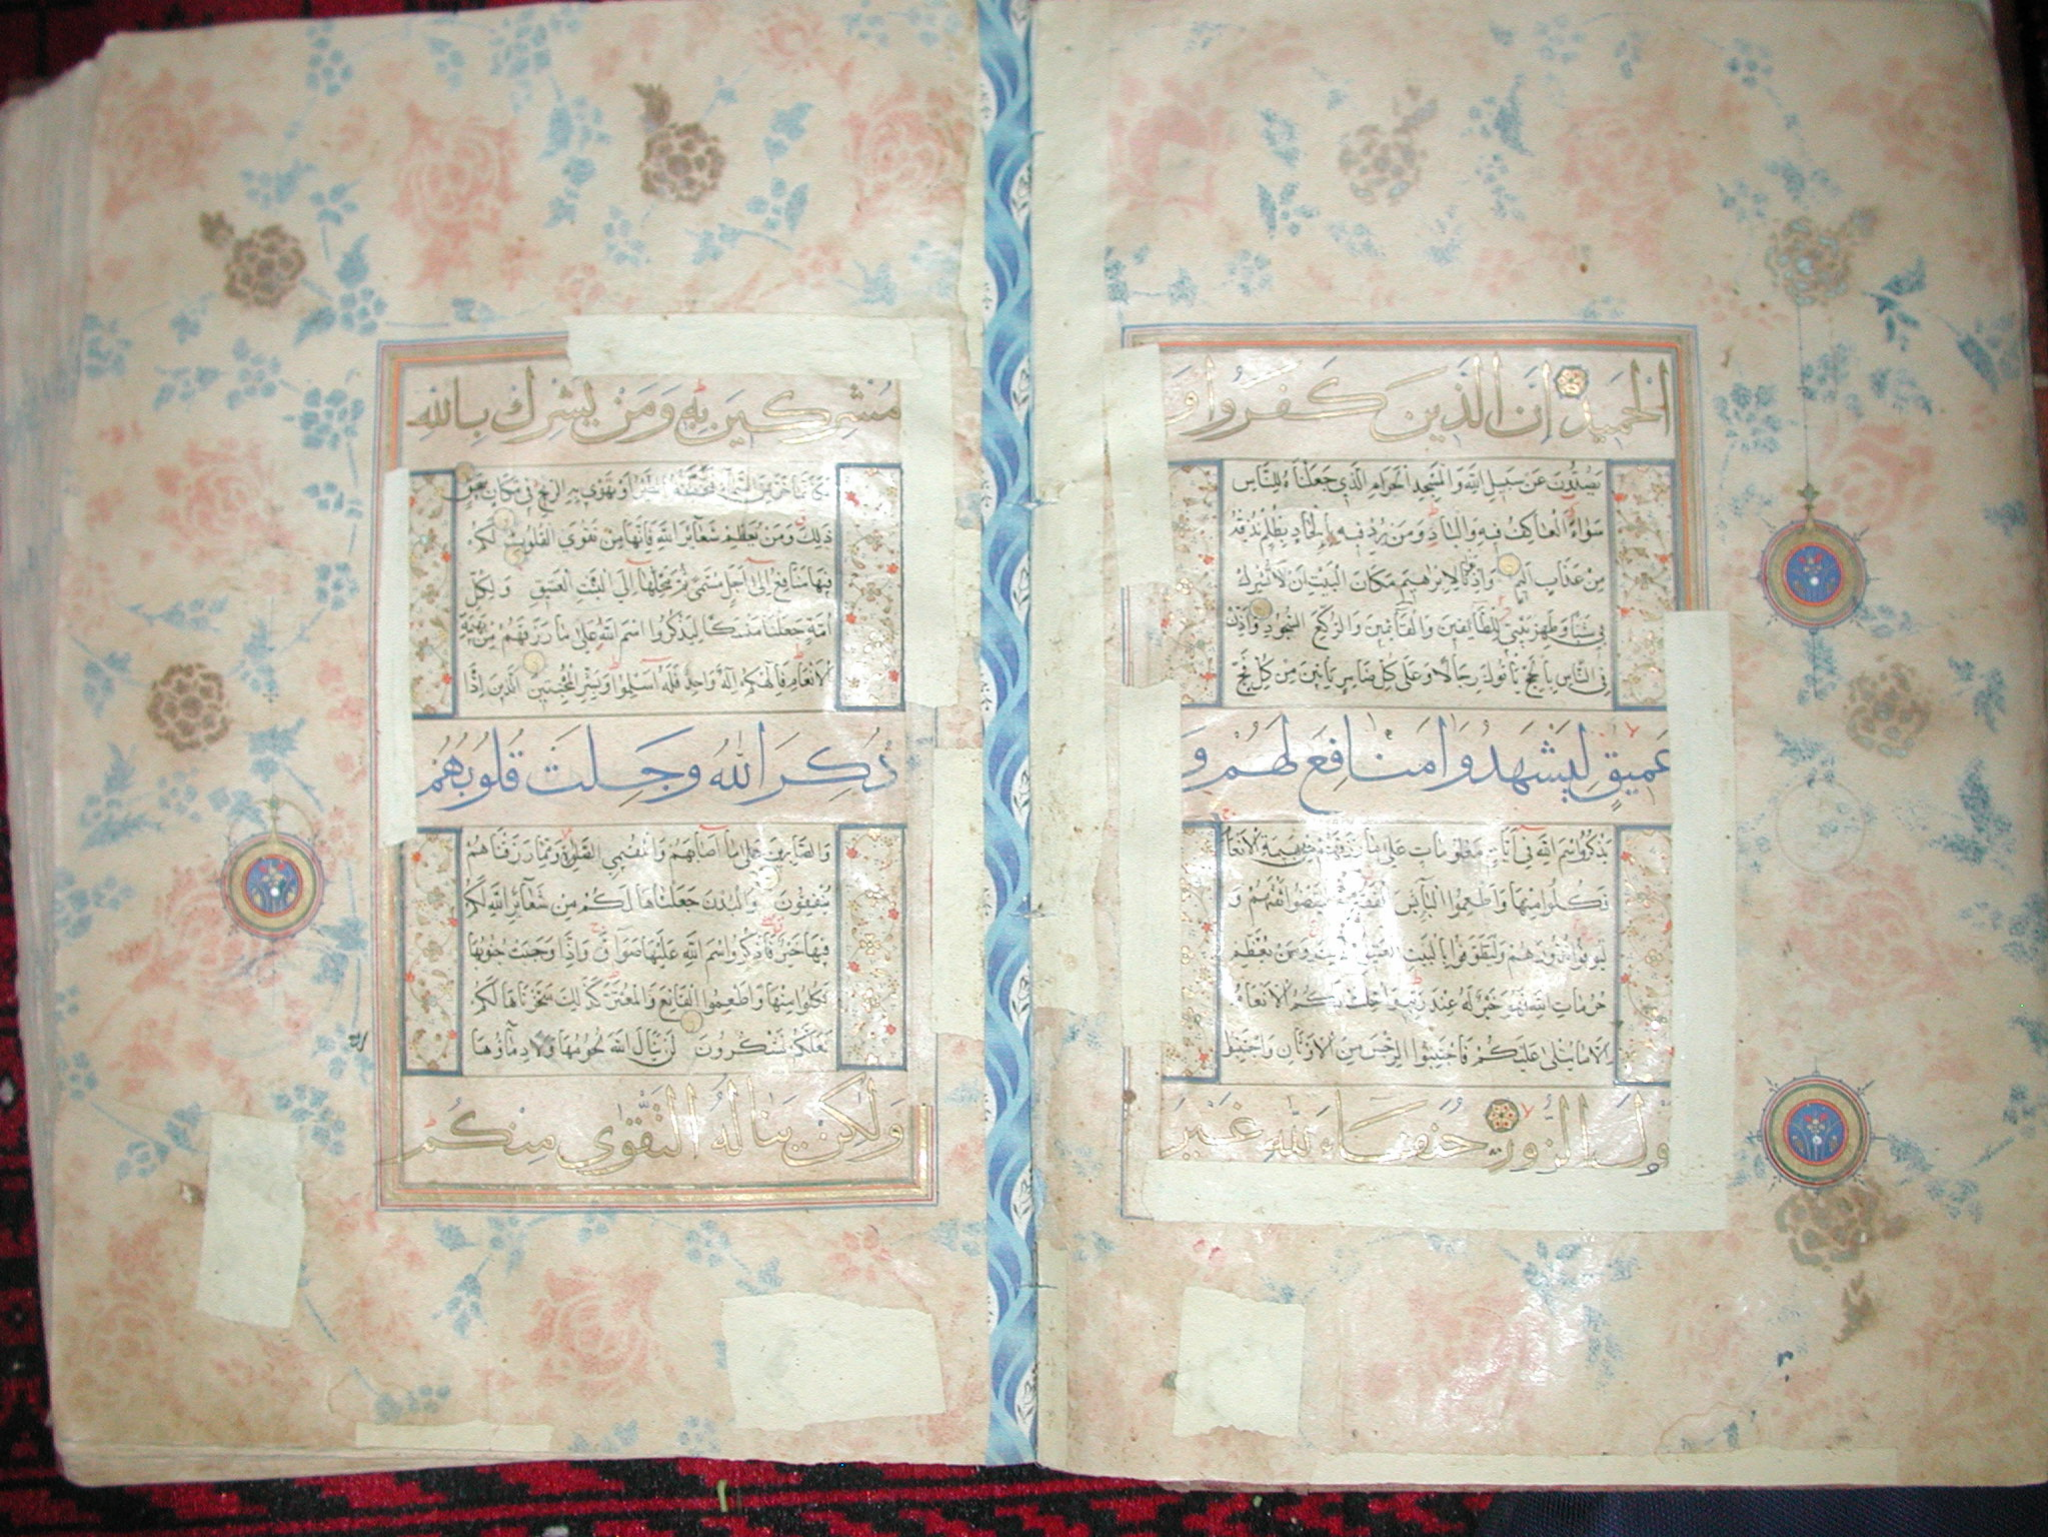 الْحَمِيدِ إِنَّ الَّذِينَ كَفَرُوا وَ
يَصُدُّونَ عَنْ سَبِيلِ اللَّهِ وَالْمَسْجِدِ الْحَرَامِ الَّذِي جَعَلْنَاهُ لِلنَّاسِ
سَوَاءً الْعَاكِفُ فِيهِ وَالْبَادِ وَمَنْ يُرِدْ فِيهِ بِإِلْحَادٍ بِظُلْمٍ نُذِقْهُ
مِنْ عَذَابٍ أَلِيمٍ وَإِذْ بَوَّأْنَا لِإِبْرَاهِيمَ مَكَانَ الْبَيْتِ أَنْ لَا تُشْرِكْ
بِي شَيْئًا وَطَهِّرْ بَيْتِيَ لِلطَّائِفِينَ وَالْقَائِمِينَ وَالرُّكَّعِ السُّجُودِ وَأَذِّنْ
فِي النَّاسِ بِالْحَجِّ يَأْتُوكَ رِجَالًا وَعَلَى كُلِّ ضَامِرٍ يَأْتِينَ مِنْ كُلِّ فَجٍّ
عَمِيقٍ لِيَشْهَدُوا مَنَافِعَ لَهُمْ وَ
يَذْكُرُوا اسْمَ اللَّهِ فِي أَيَّامٍ مَعْلُومَاتٍ عَلَى مَا رَزَقَهُمْ مِنْ بَهِيمَةِ الْأَنْعَامِ
فَكُلُوا مِنْهَا وَأَطْعِمُوا الْبَائِسَ الْفَقِيرَ ثُمَّ لْيَقْضُوا تَفَثَهُمْ وَ
لْيُوفُوا نُذُورَهُمْ وَلْيَطَّوَّفُوا بِالْبَيْتِ الْعَتِيقِ ذَلِكَ وَمَنْ يُعَظِّمْ
حُرُمَاتِ اللَّهِ فَهُوَ خَيْرٌ لَهُ عِنْدَ رَبِّهِ وَأُحِلَّتْ لَكُمُ الْأَنْعَامُ
إِلَّا مَا يُتْلَى عَلَيْكُمْ فَاجْتَنِبُوا الرِّجْسَ مِنَ الْأَوْثَانِ وَاجْتَنِبُوا
قَوْلَ الزُّورِ حُنَفَاءَ لِلَّهِ غَيْرَ
مُشْرِكِينَ بِهِ وَمَنْ يُشْرِكْ بِاللَّهِ
فَكَأَنَّمَا خَرَّ مِنَ السَّمَاءِ فَتَخْطَفُهُ الطَّيْرُ أَوْ تَهْوِي بِهِ الرِّيحُ فِي مَكَانٍ سَحِيقٍ
ذَلِكَ وَمَنْ يُعَظِّمْ شَعَائِرَ اللَّهِ فَإِنَّهَا مِنْ تَقْوَى الْقُلُوبِ لَكُمْ
فِيهَا مَنَافِعُ إِلَى أَجَلٍ مُسَمًّى ثُمَّ مَحِلُّهَا إِلَى الْبَيْتِ الْعَتِيقِ وَلِكُلِّ
أُمَّةٍ جَعَلْنَا مَنْسَكًا لِيَذْكُرُوا اسْمَ اللَّهِ عَلَى مَا رَزَقَهُمْ مِنْ بَهِيمَةِ
الْأَنْعَامِ فَإِلَهُكُمْ إِلَهٌ وَاحِدٌ فَلَهُ أَسْلِمُوا وَبَشِّرِ الْمُخْبِتِينَ الَّذِينَ إِذَا
ذُكِرَ اللَّهُ وَجِلَتْ قُلُوبُهُمْ
وَالصَّابِرِينَ عَلَى مَا أَصَابَهُمْ وَالْمُقِيمِي الصَّلَوةِ وَمِمَّا رَزَقْنَاهُمْ
يُنْفِقُونَ وَالْبُدْنَ جَعَلْنَاهَا لَكُمْ مِنْ شَعَائِرِ اللَّهِ لَكُمْ
فِيهَا خَيْرٌ فَاذْكُرُوا اسْمَ اللَّهِ عَلَيْهَا صَوَافَّ فَإِذَا وَجَبَتْ جُنُوبُهَا
فَكُلُوا مِنْهَا وَأَطْعِمُوا الْقَانِعَ وَالْمُعْتَرَّ كَذَلِكَ سَخَّرْنَاهَا لَكُمْ
لَعَلَّكُمْ تَشْكُرُونَ لَنْ يَنَالَ اللَّهَ لُحُومُهَا وَلَا دِمَاؤُهَا
وَلَكِنْ يَنَالُهُ التَّقْوَى مِنْكُمْ